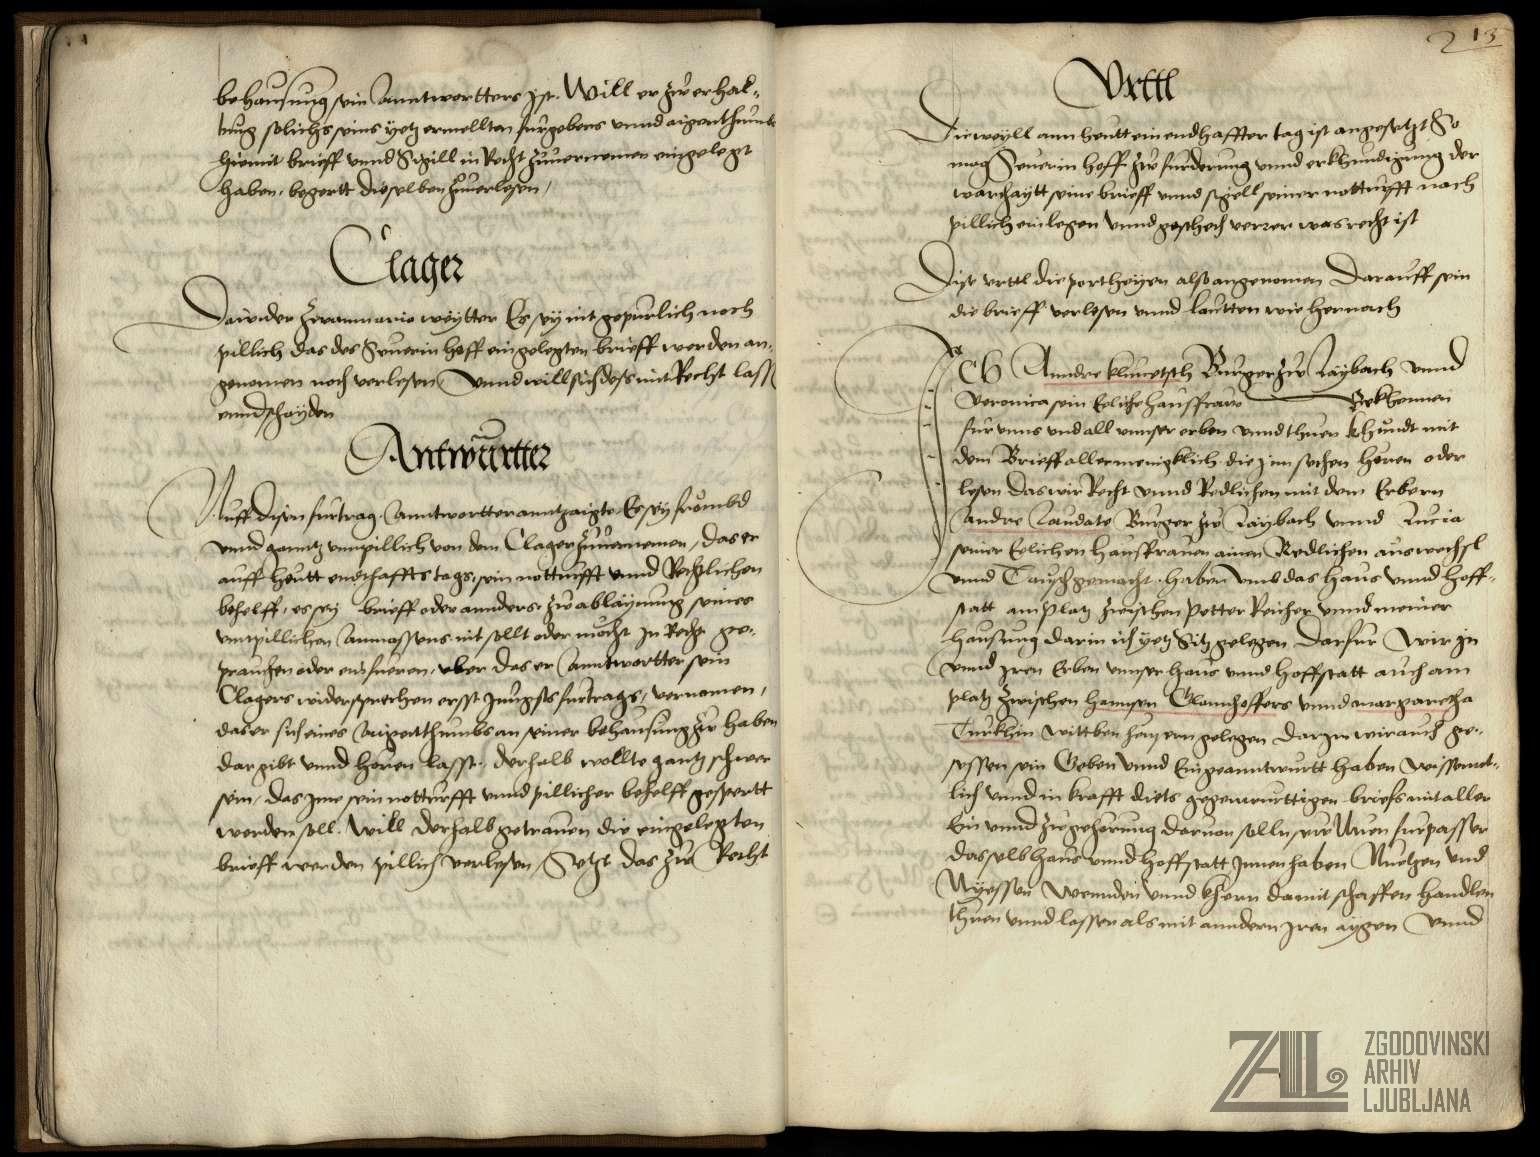 behausung sein Anntwortters ist. Will er zw erhal-
tung solichs seins yetz ermellten furgebens unnd aigenthumbs
hiemit brieff unnd Sigill in Recht zuuernemen eingelegt
haben, begertt dieselben zuuerlesen,
Clager
Dawider Zwanmario weytter Es sey nit gepurlich noch
pillich das des Seuerin Hoff eingelegten brieff werden an-
genomen noch verlesen Unnd will sich dess mit Recht lassen
enndschayden
Antwurtter
Auff disen furtrag Anntwortter anntzaigte Es sey frömbd
unnd ganntz unnpillich von dem Clager zuuernemen, das er
auff heutt endthaffts tags, sein notturfft unnd Rechtlichen
behelff, es sey brieff oder annders, zw ablaynung seines
unnpillichen Anmassens nit sollt oder möcht In Recht ge-
prauchen oder einfueren, uber das er Anntwortter sein
Clagers widersprechen erst Jungsts furtrags, vernomen,
das er sich eines Aigenthumbs an seiner behausung zw haben
dargibt unnd horen lasst. derhalb wollte gantz schwer
sein, das Ime sein notturfft unnd pillicher behelff gesperrtt
werden soll. Will derhalb getrauen die eingelegten
brieff werden pillich verlesen, Setzt das zw Recht
13
Urttl
Dieweyll ann heutt ein endhaffter tag ist angesetzt So
mag Seuerin Hoff zw furderung unnd erkhundigung der
warhaytt seine brieff unnd sigell seiner notturfft nach
pillich einlegen unnd geschech verrer was recht ist
Dise urttl die partheyen also angenomen Darauff sein
die brieff verlesen unnd lautten wie hernach
Ich Anndre klimetsch Burger zw Laybach unnd
Veronica sein Eeliche hausfraw Bekhennen
fur unns und all unnser erben unnd thuen khundt mit
dem Brieff allermenigklich die Jnn sechen horen oder
lesen das wir Recht unnd Redlichen mit dem Erbern
Andre Laudato Burger zw Laybach unnd Lucia
seiner Eelichen hausfrauen ainen Redlichen auswechsl
unnd Tausch gemacht haben umb das haus unnd hoff-
statt am platz zwischen Petter Reicher unnd meiner
hausung darin ich yetz Sitz gelegen Darfur Wir Jn
unnd Jren Erben unnser haus unnd hoffstatt auch am
platz zwischen hannsen Clannhoffers unnd margaretha
Turkhin wittben heusern gelegen Darjn wir auch ge-
sessen sein Geben unnd Eingeanntwurtt haben wissennt-
lich unnd in krafft diets gegenwurttigen briefs mit aller
Ein unnd zuegehorung daruon solln furpasser
dasselb haus unnd hoffstatt Innen haben Nuetzen und
Nyessen Wennden unnd khern damit schaffen handlen
thuen unnd lassen als mit anndern Jren aygen Unnd
ZAL
ZGODOVINSKI
ARHIV
LJUBLJANA